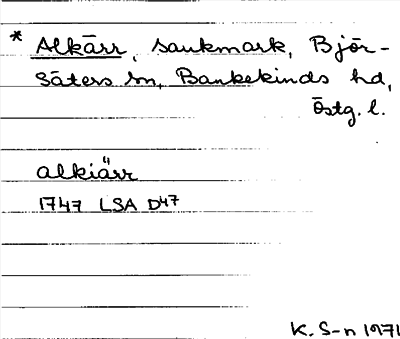 * Alkärr, sankmark, Björ-
säters sn, Bankekinds hd,
Östg. l.
alkiärr
1747 LSA D47
K. S-n 1971